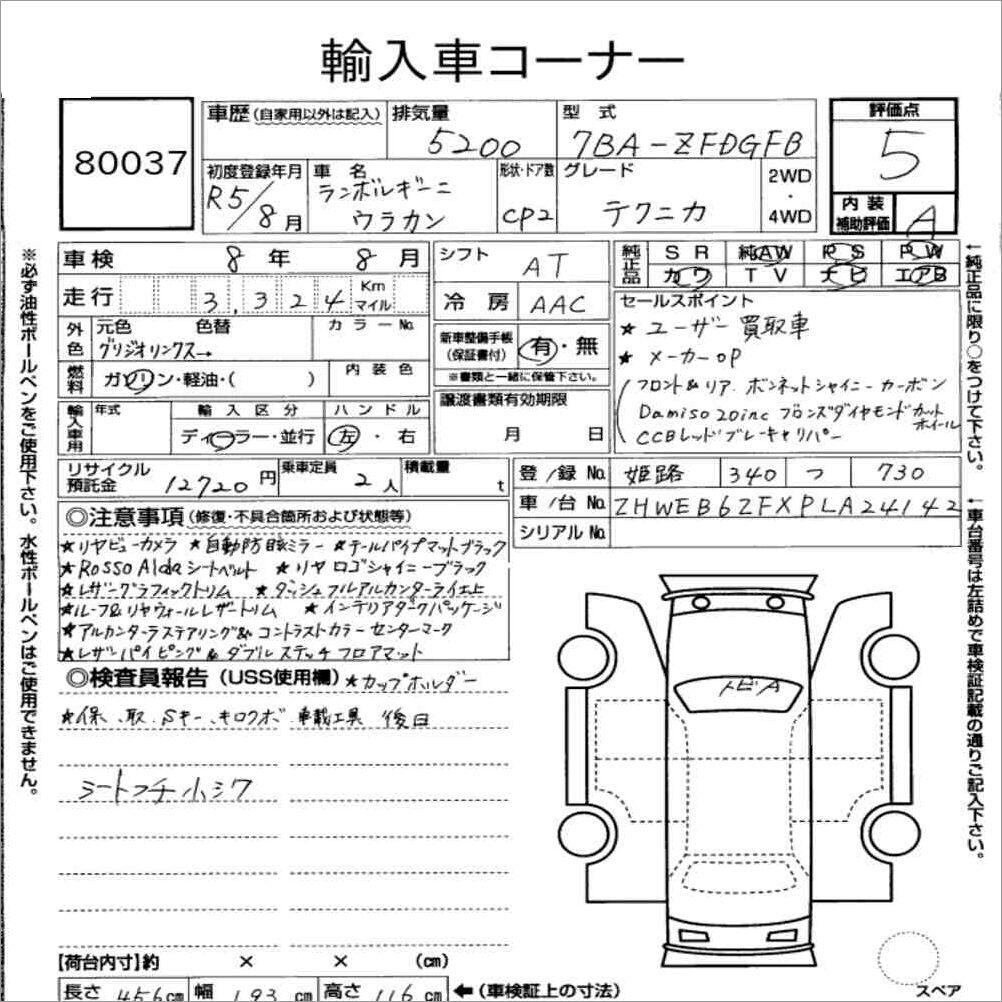 輸入車コーナー
80037
車歴(自家用以外は記入)
排気量
5200
型式
7BA-ZFDGFB
評価点
5
初度登録年月
R5/8月
車名
ランボルギーニ
ウラカン
形状・ドア数
CP2
グレード
テクニカ
2WD
・
4WD
内装
補助評価
A
車検 8年 8月
走行 3,324 Km マイル
シフト AT
冷房 AAC
純正品 SR 純AW PS PW
カワ TV ナビ エアB
外色 元色 色替 カラーNo.
グリジオリンクス→
燃料 ガソリン・軽油・( )
内装色
新車整備手帳
(保証書付)
有・無
※書類と一緒に保管下さい。
セールスポイント
★ユーザー買取車
★メーカーOP
フロント&リア.ボンネットシャイニーカーボン
Damiso 20inc ブロンズダイヤモンドカットホイール
CCBレッドブレーキャリパー
輸入車用 年式 輸入区分 ハンドル
ディーラー・並行 左・右
譲渡書類有効期限
月 日
リサイクル
預託金
12720円
乗車定員
2人
積載量
t
登/録No. 姫路 340 つ 730
車/台No. ZHWEB6ZFXPLA24142
シリアルNo.
◎注意事項(修復・不具合箇所および状態等)
★リヤビューカメラ ★自動防眩ミラー ★テールパイプマットブラック
★Rosso Aldaシートベルト ★リヤロゴシャイニーブラック
★レザーグラフィックトリム ★ダッシュフルアルカンターライエ上
★ルーフ&リヤウォールレザートリム ★インテリアダークパッケージ
★アルカンターラステアリング&コントラストカラーセンターマーク
★レザーパイピング&ダブルステッチフロアマット
◎検査員報告(USS使用欄) ★カップホルダー
★保、取、Sキー、キロクボ、車載工具 後日
シートフチ小シワ
トビA
【荷台内寸】約 × × (cm)
長さ 456cm 幅 193cm 高さ 116cm ←(車検証上の寸法)
スペア
※必ず油性ボールペンをご使用下さい。水性ボールペンはご使用できません。
←純正品に限り○をつけて下さい。
←車台番号は左詰めで車検証記載の通りご記入下さい。